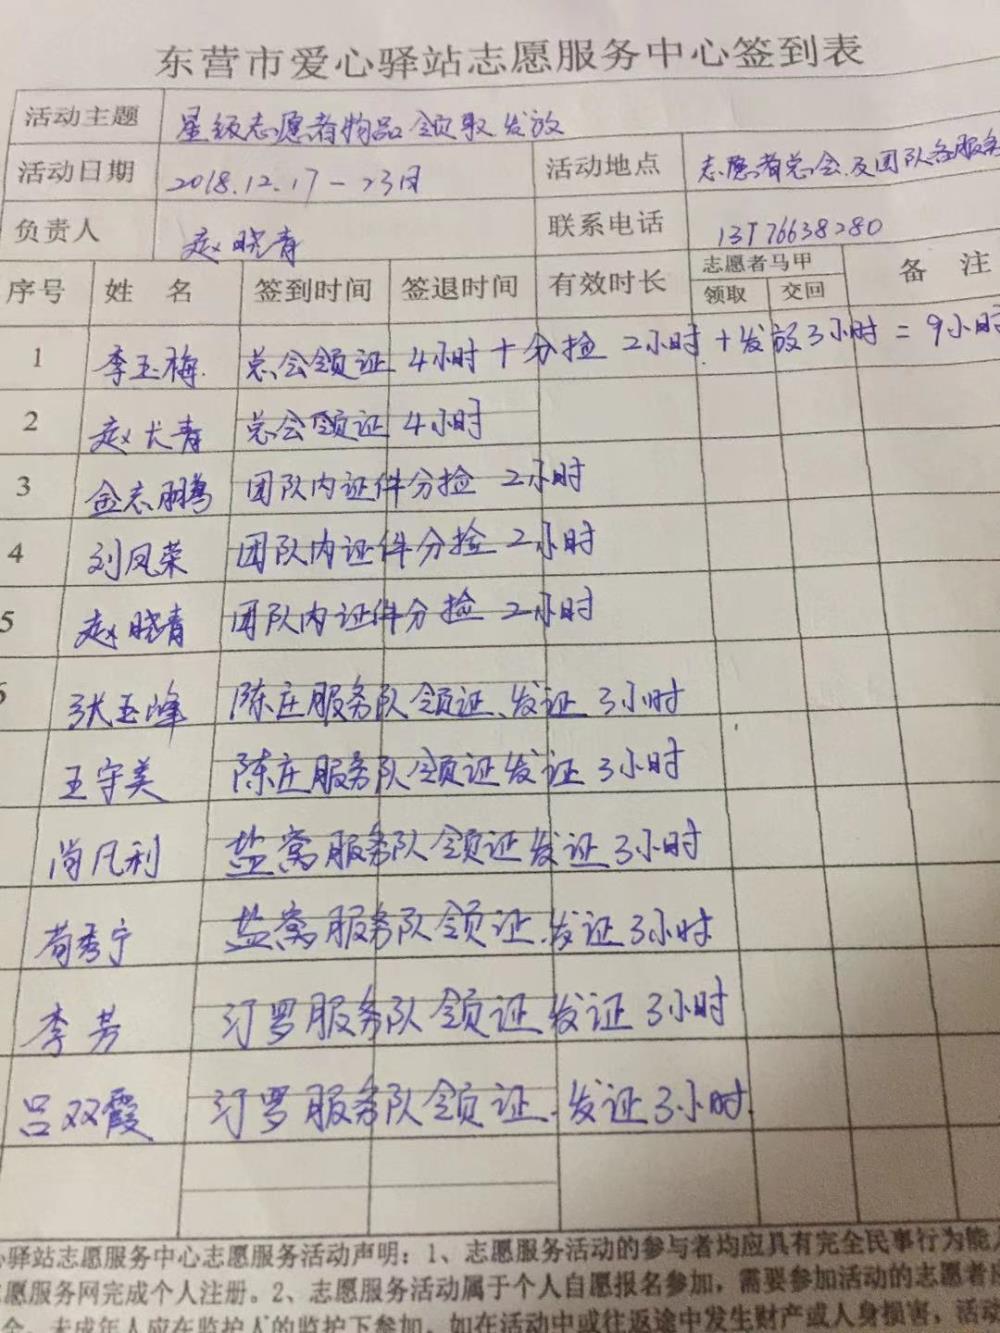 东营市爱心驿站志愿服务中心签到表
活动主题 星级志愿者物品领取发放
活动日期 2018.12.17-23日 活动地点 志愿者总会及团队各服务
负责人 赵晓青 联系电话 13176638280
序号 姓 名 签到时间 签退时间 有效时长 志愿者马甲 备 注
领取 交回
1 李玉梅 总会领证 4小时+分捡 2小时+发放3小时=9小时
2 赵大青 总会领证 4小时
3 金志鹏 团队内证件分捡 2小时
4 刘凤荣 团队内证件分捡 2小时
5 赵晓青 团队内证件分捡 2小时
张玉峰 陈庄服务队领证、发证 3小时
王守美 陈庄服务队领证发证 3小时
尚凡利 盐窝服务队领证发证3小时
荀秀宁 盐窝服务队领证.发证3小时
李芳 汀罗服务队领证发证3小时
吕双霞 汀罗服务队领证.发证3小时
驿站志愿服务中心志愿服务活动声明：1、志愿服务活动的参与者均应具有完全民事行为能
愿服务网完成个人注册。2、志愿服务活动属于个人自愿报名参加，需要参加活动的志愿者
未成年人应在监护人的监护下参加。如在活动中或往返途中发生财产或人身损害，活动